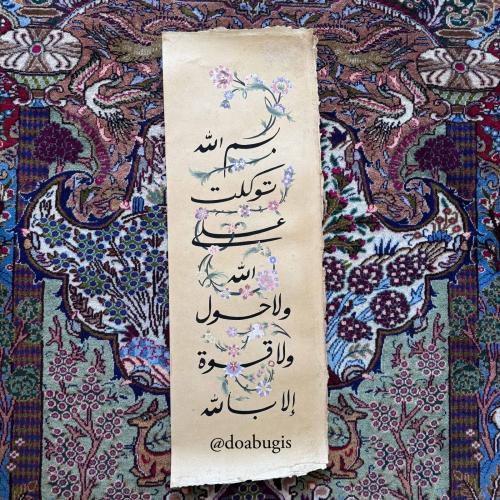 بسم الله
توكلت
على
الله
ولا حول
ولا قوة
إلا بالله
@doabugis